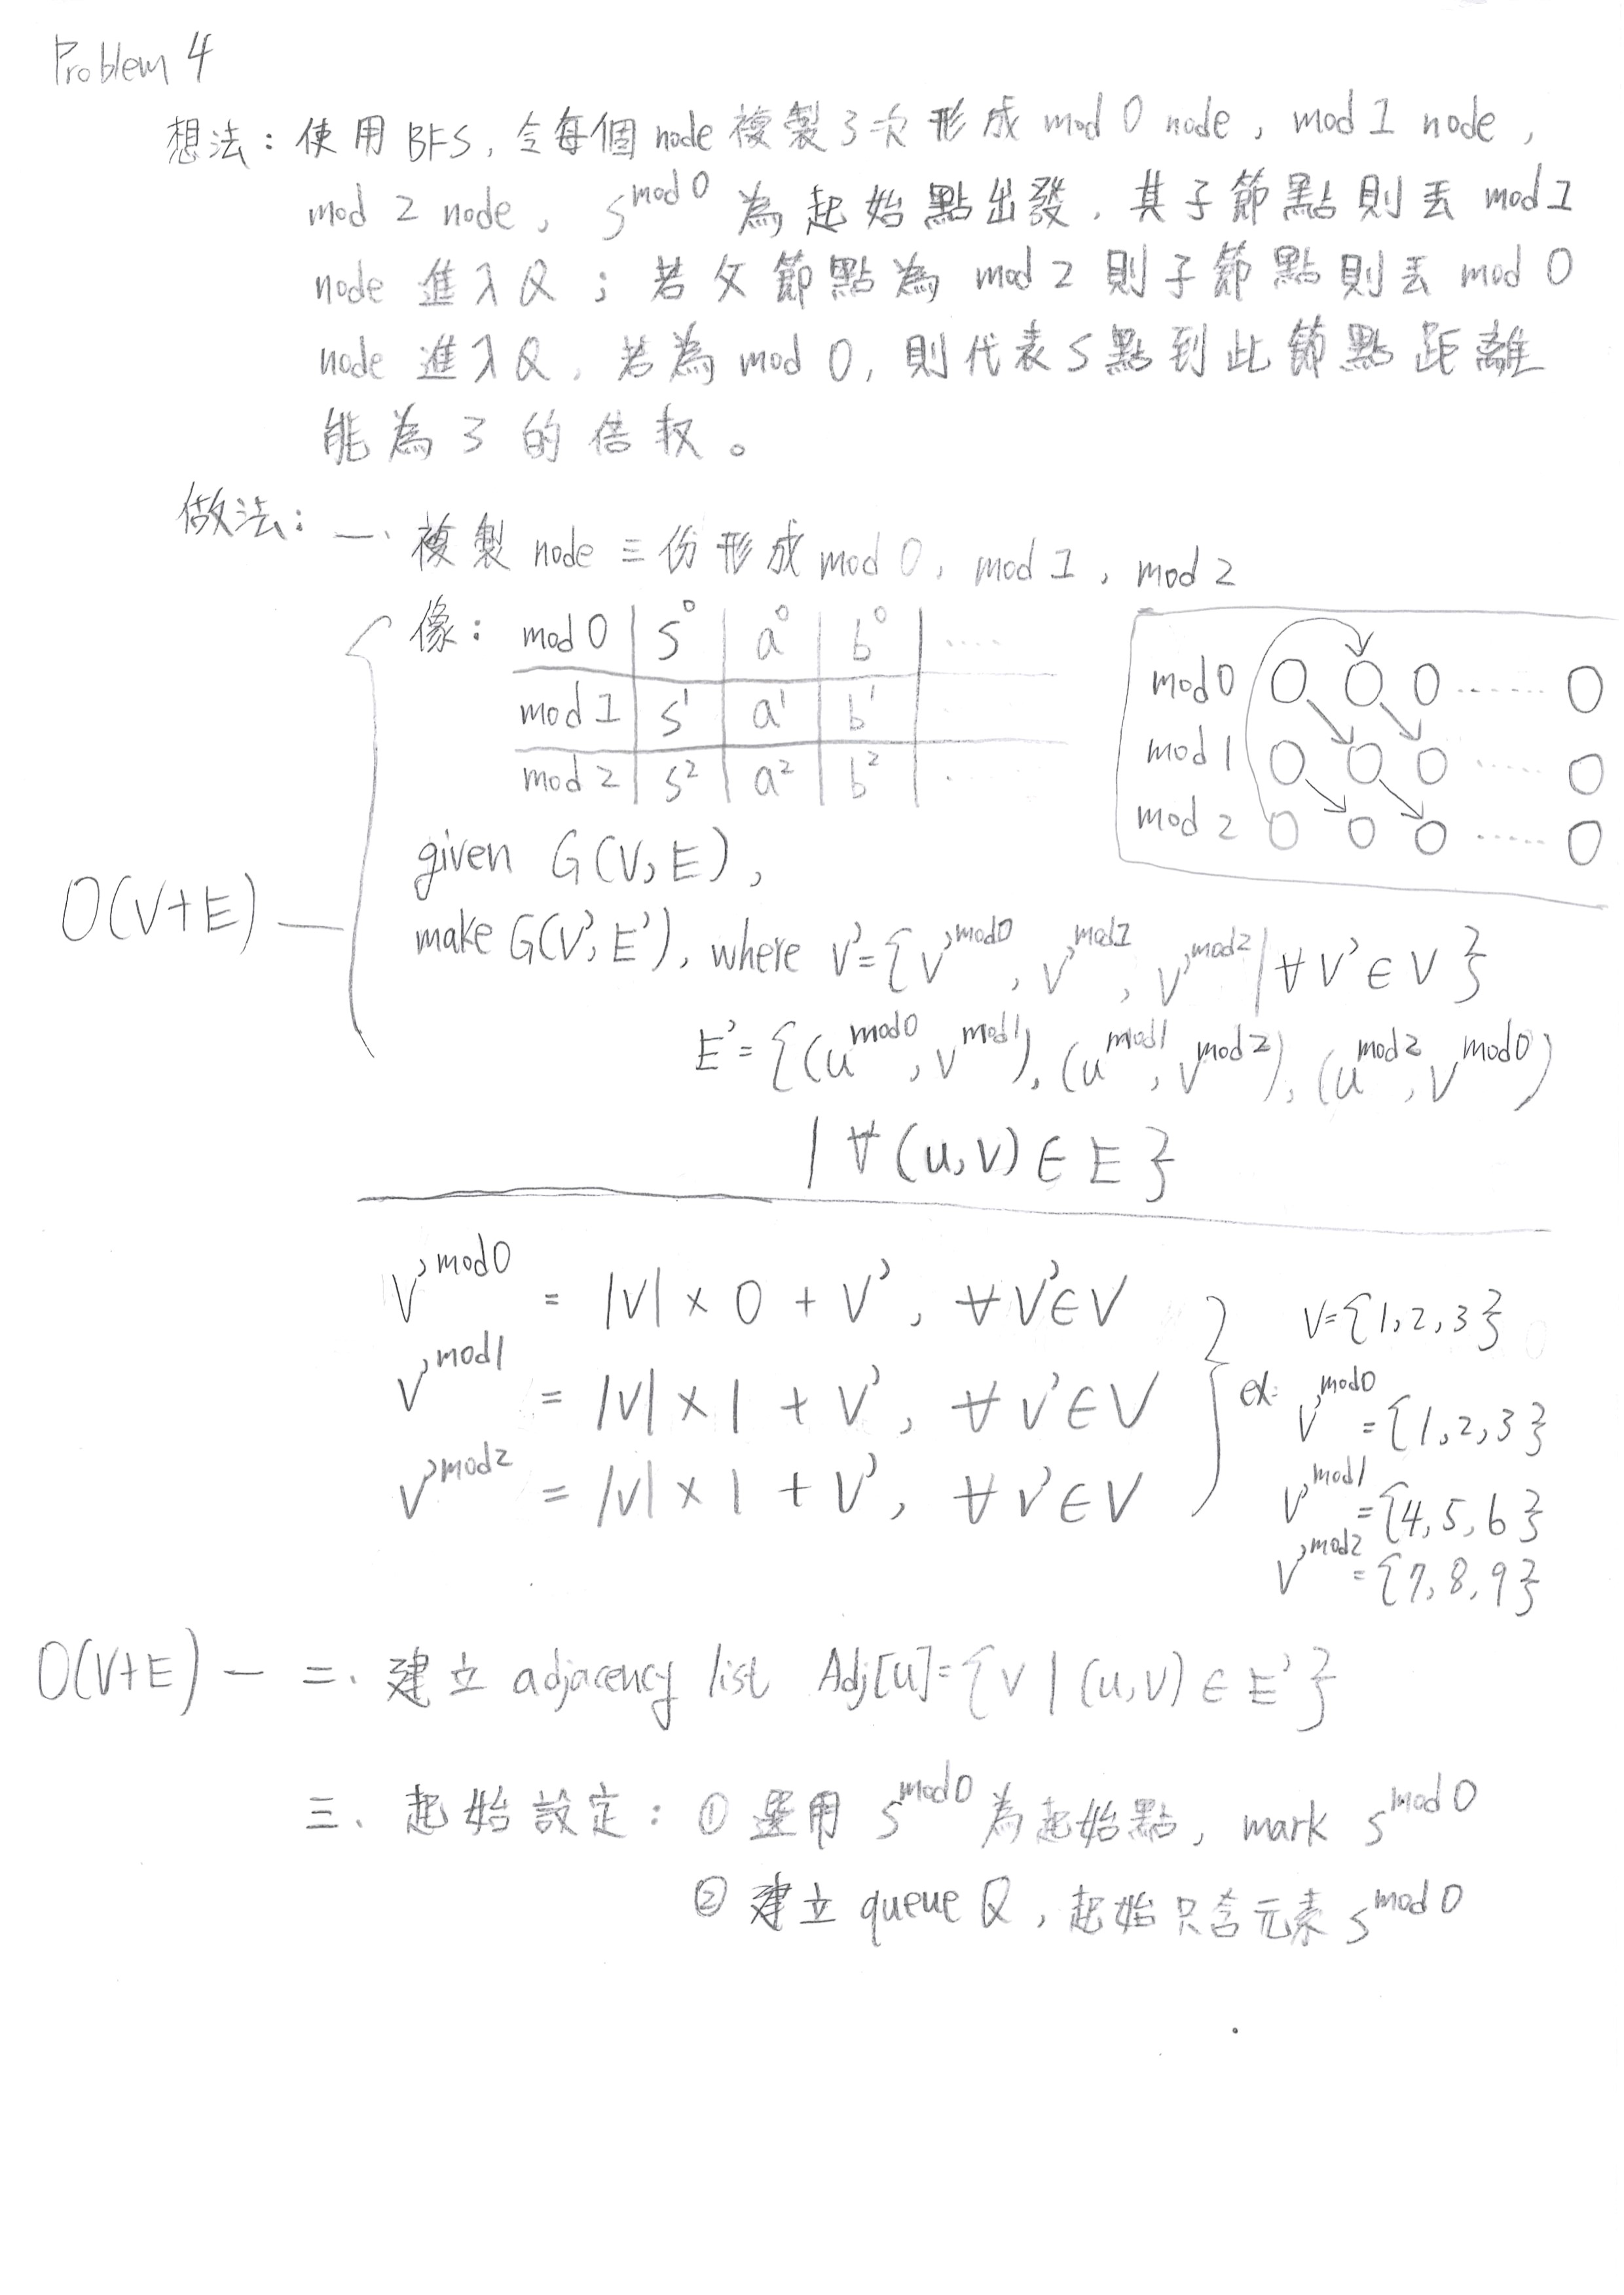 Problem 4
想法：使用 BFS, 令每個 node 複製 3 次 形成 mod 0 node , mod 1 node ,
mod 2 node , s^mod0 為起始點出發 , 其子節點則丟 mod 1
node 進入 Q ; 若父節點為 mod 2 則子節點則丟 mod 0
node 進入 Q , 若為 mod 0 , 則代表 S 點到此節點距離
能為 3 的倍数 。
做法： 一、複製 node 三份形成 mod 0 , mod 1 , mod 2
像： mod 0 | s^0 | a^0 | b^0 | ....
mod 1 | s^1 | a^1 | b^1 | .
mod 2 | s^2 | a^2 | b^2 | .
mod 0 O O O ...... O
mod 1 O O O ..... O
mod 2 O O O ..... O
given G(V, E) ,
O(V+E) — make G(V', E') , where V' = {v'^mod0 , v'^mod1 , v'^mod2 | ∀ v' ∈ V }
E' = {(u^mod0 , v^mod1), (u^mod1 , v^mod2), (u^mod2 , v^mod0)
| ∀ (u, v) ∈ E }
v'^mod0 = |V| × 0 + v' , ∀ v' ∈ V
v'^mod1 = |V| × 1 + v' , ∀ v' ∈ V
v'^mod2 = |V| × 1 + v' , ∀ v' ∈ V
ex: V = {1, 2, 3}
v'^mod0 = {1, 2, 3}
v'^mod1 = {4, 5, 6}
v'^mod2 = {7, 8, 9}
O(V+E) — 二、建立 adjacency list Adj[u] = {v | (u, v) ∈ E'}
三、起始設定： ① 選用 s^mod0 為起始點 , mark s^mod0
② 建立 queue Q , 起始只含元素 s^mod0